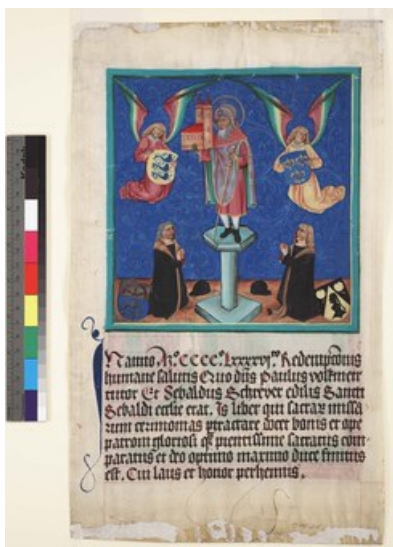 Anno M° CCCC° Lxxxxvi° Redemptionis
humane salutis Quo dns Paulus volkmeir
tutor Et Sebaldus Schreyer edilis Sancti
Sebaldi ecclie erat. Is liber qui sacrar missa
rum cerimonias ptractare docet bonis et ope
patroni gloriosi
pientissime sacratus com
paratus et deo optimo maximo duce finitus
est. Cui laus et honor perhennis.